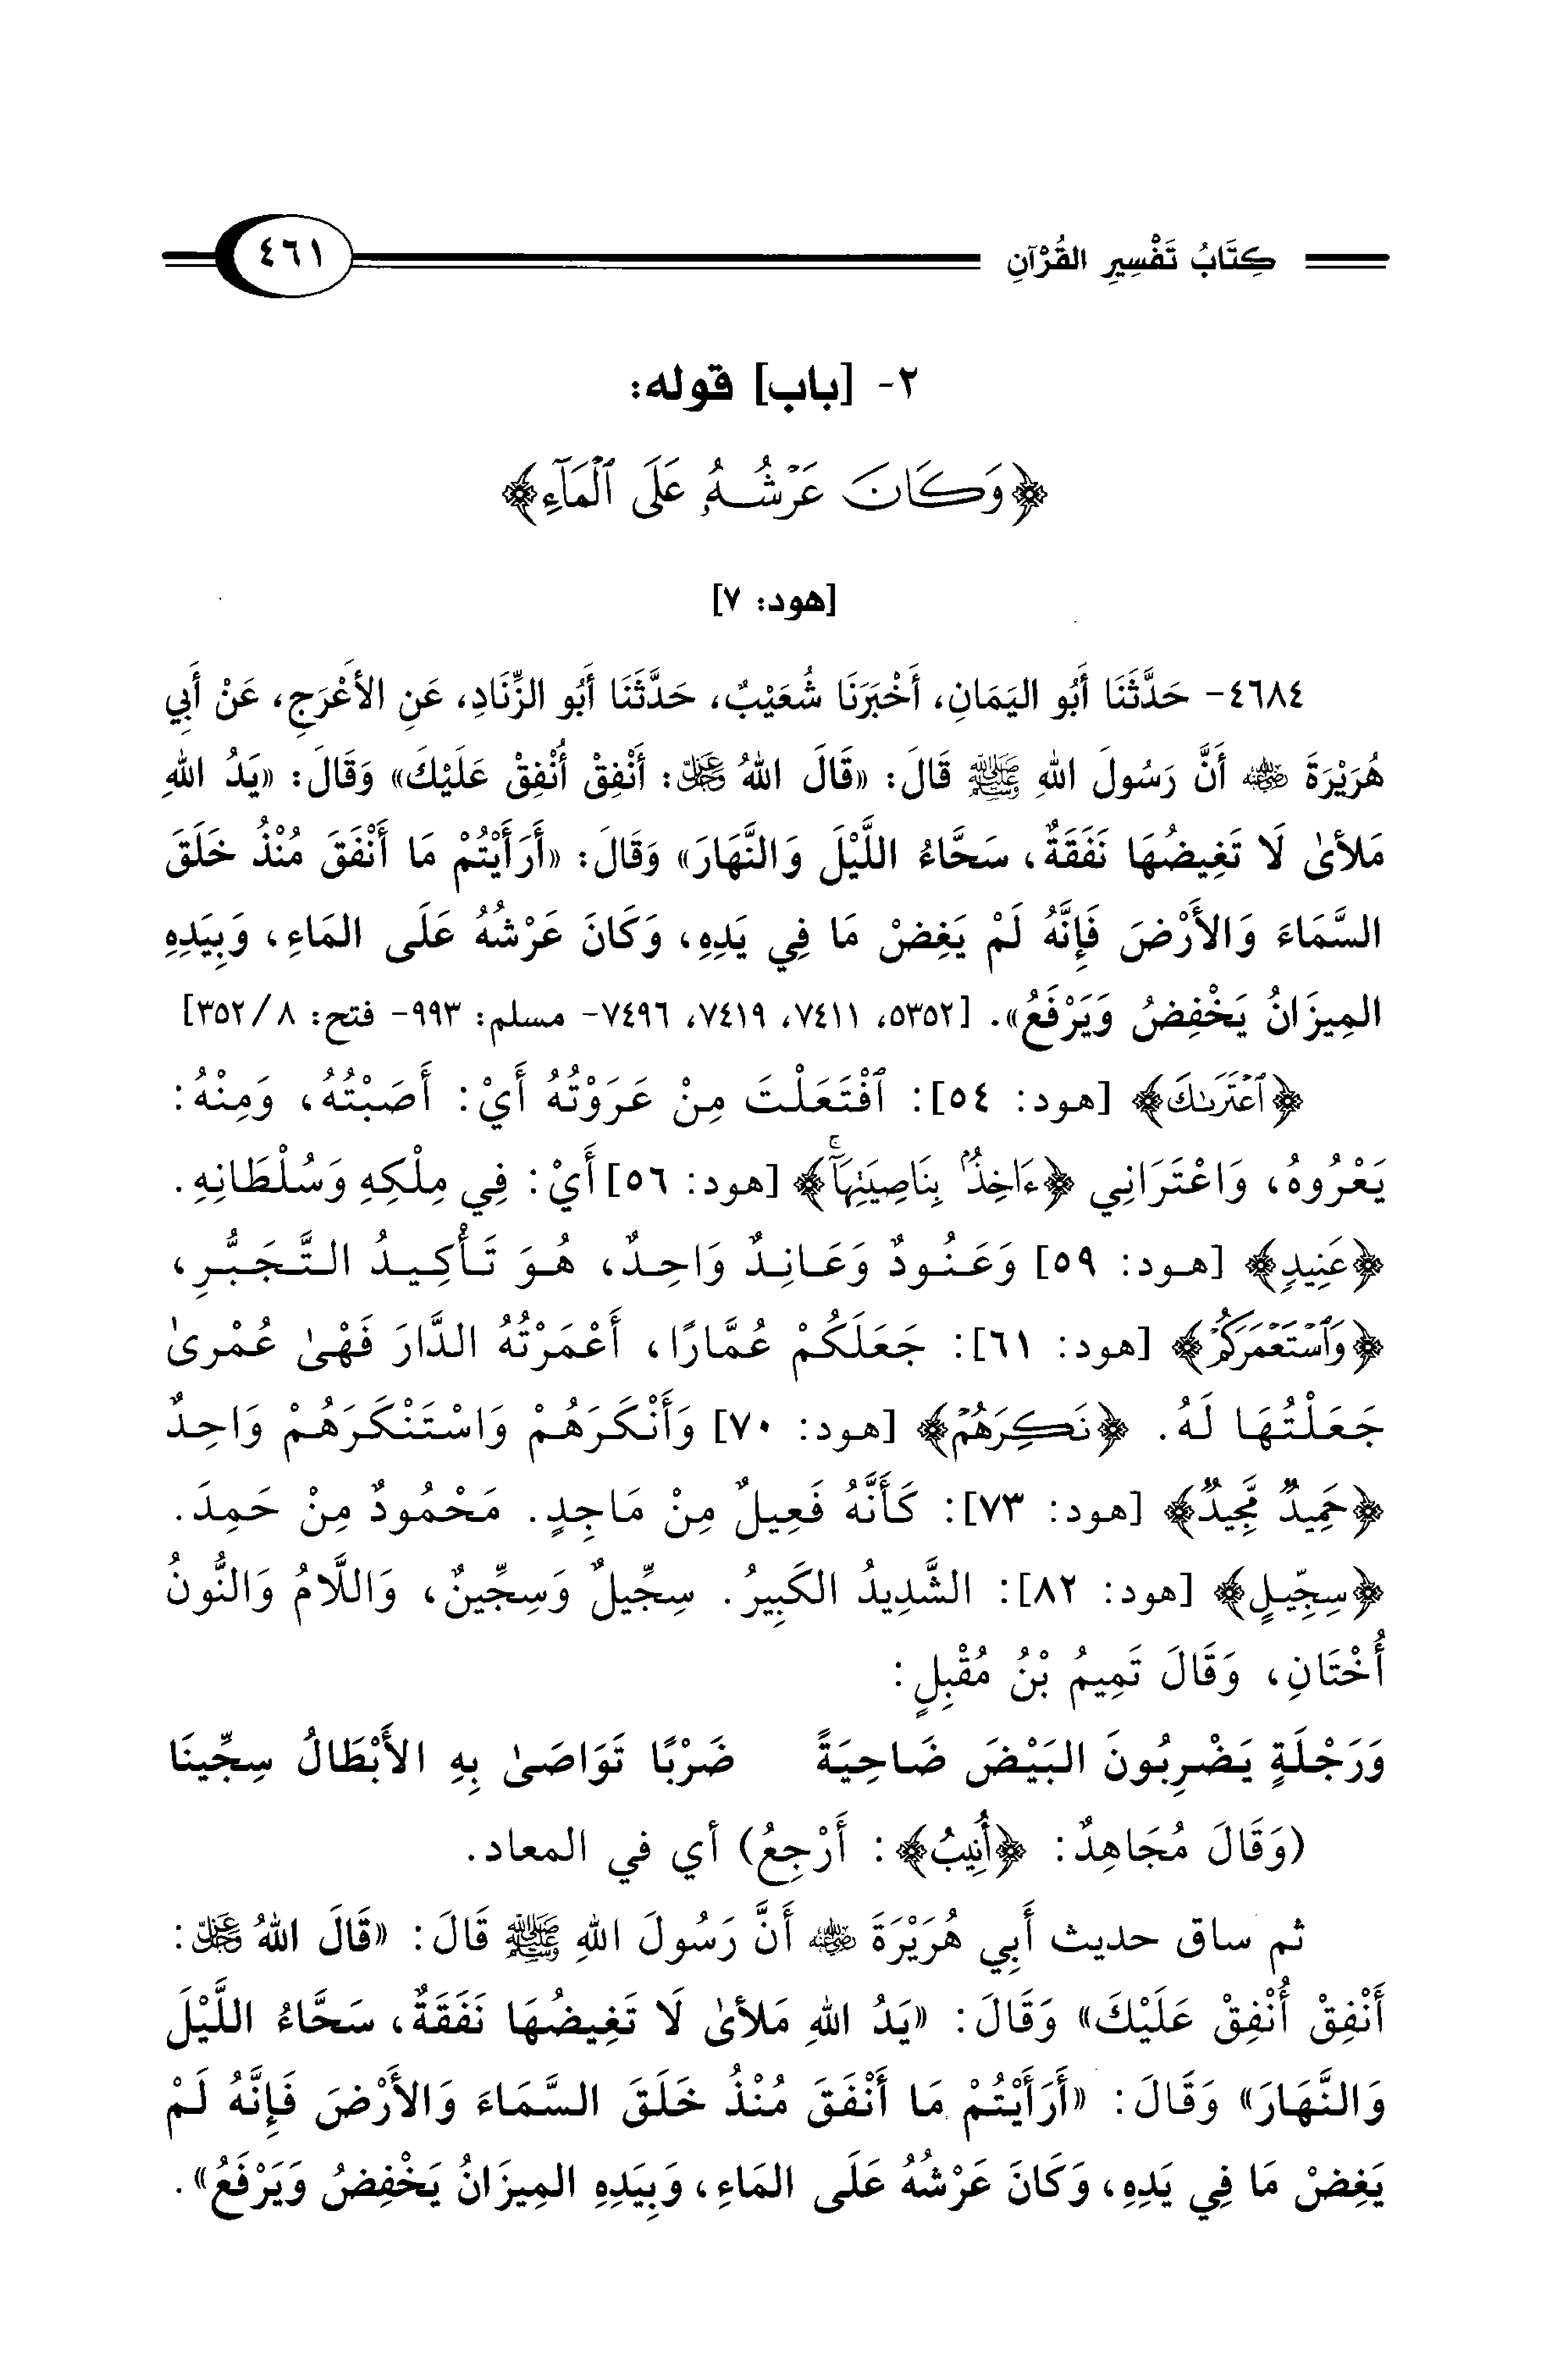 كِتَابُ تَفْسِيرِ القُرْآنِ ٤٦١
٢- [باب] قوله:
﴿وَكَانَ عَرْشُهُۥ عَلَى ٱلْمَآءِ﴾
[هود: ٧]
٤٦٨٤- حَدَّثَنَا أَبُو اليَمَانِ، أَخْبَرَنَا شُعَيْبٌ، حَدَّثَنَا أَبُو الزِّنَادِ، عَنِ الأَعْرَجِ، عَنْ أَبِي
هُرَيْرَةَ رضي الله عنه أَنَّ رَسُولَ اللهِ ﷺ قَالَ: «قَالَ اللهُ عز وجل: أَنْفِقْ أُنْفِقْ عَلَيْكَ» وَقَالَ: «يَدُ اللهِ
مَلأىٰ لَا تَغِيضُهَا نَفَقَةٌ، سَحَّاءُ اللَّيْلَ وَالنَّهَارَ» وَقَالَ: «أَرَأَيْتُمْ مَا أَنْفَقَ مُنْذُ خَلَقَ
السَّمَاءَ وَالأَرْضَ فَإِنَّهُ لَمْ يَغِضْ مَا فِي يَدِهِ، وَكَانَ عَرْشُهُ عَلَى المَاءِ، وَبِيَدِهِ
المِيزَانُ يَخْفِضُ وَيَرْفَعُ». [٥٣٥٢، ٧٤١١، ٧٤١٩، ٧٤٩٦- مسلم: ٩٩٣- فتح: ٨/ ٣٥٢]
﴿ٱعْتَرَىٰكَ﴾ [هود: ٥٤]: ٱفْتَعَلْتَ مِنْ عَرَوْتُهُ أَيْ: أَصَبْتُهُ، وَمِنْهُ:
يَعْرُوهُ، وَاعْتَرَانِي ﴿ءَاخِذٌۢ بِنَاصِيَتِهَآۚ﴾ [هود: ٥٦] أَيْ: فِي مِلْكِهِ وَسُلْطَانِهِ.
﴿عَنِيدٍ﴾ [هود: ٥٩] وَعَنُودٌ وَعَانِدٌ وَاحِدٌ، هُوَ تَأْكِيدُ التَّجَبُّرِ،
﴿وَٱسْتَعْمَرَكُمْ﴾ [هود: ٦١]: جَعَلَكُمْ عُمَّارًا، أَعْمَرْتُهُ الدَّارَ فَهْىَ عُمْرىٰ
جَعَلْتُهَا لَهُ. ﴿نَكِرَهُمْ﴾ [هود: ٧٠] وَأَنْكَرَهُمْ وَاسْتَنْكَرَهُمْ وَاحِدٌ
﴿حَمِيدٌ مَّجِيدٌ﴾ [هود: ٧٣]: كَأَنَّهُ فَعِيلٌ مِنْ مَاجِدٍ. مَحْمُودٌ مِنْ حَمِدَ.
﴿سِجِّيلٍ﴾ [هود: ٨٢]: الشَّدِيدُ الكَبِيرُ. سِجِّيلٌ وَسِجِّينٌ، وَاللَّامُ وَالنُّونُ
أُخْتَانِ، وَقَالَ تَمِيمُ بْنُ مُقْبِلٍ:
وَرَجْلَةٍ يَضْرِبُونَ البَيْضَ ضَاحِيَةً ضَرْبًا تَوَاصَىٰ بِهِ الأَبْطَالُ سِجِّينَا
(وَقَالَ مُجَاهِدٌ: ﴿أُنِيبُ﴾: أَرْجِعُ) أي في المعاد.
ثم ساق حديث أَبِي هُرَيْرَةَ رضي الله عنه أَنَّ رَسُولَ اللهِ ﷺ قَالَ: «قَالَ اللهُ عز وجل:
أَنْفِقْ أُنْفِقْ عَلَيْكَ» وَقَالَ: «يَدُ اللهِ مَلأىٰ لَا تَغِيضُهَا نَفَقَةٌ، سَحَّاءُ اللَّيْلَ
وَالنَّهَارَ» وَقَالَ: «أَرَأَيْتُمْ مَا أَنْفَقَ مُنْذُ خَلَقَ السَّمَاءَ وَالأَرْضَ فَإِنَّهُ لَمْ
يَغِضْ مَا فِي يَدِهِ، وَكَانَ عَرْشُهُ عَلَى المَاءِ، وَبِيَدِهِ المِيزَانُ يَخْفِضُ وَيَرْفَعُ».